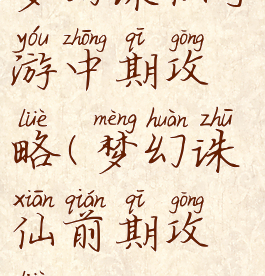 yóu zhōng qī gōng
游中期攻
lüè mèng huàn zhū
略(梦幻诛
xiān qián qī gōng
仙前期攻
lüè